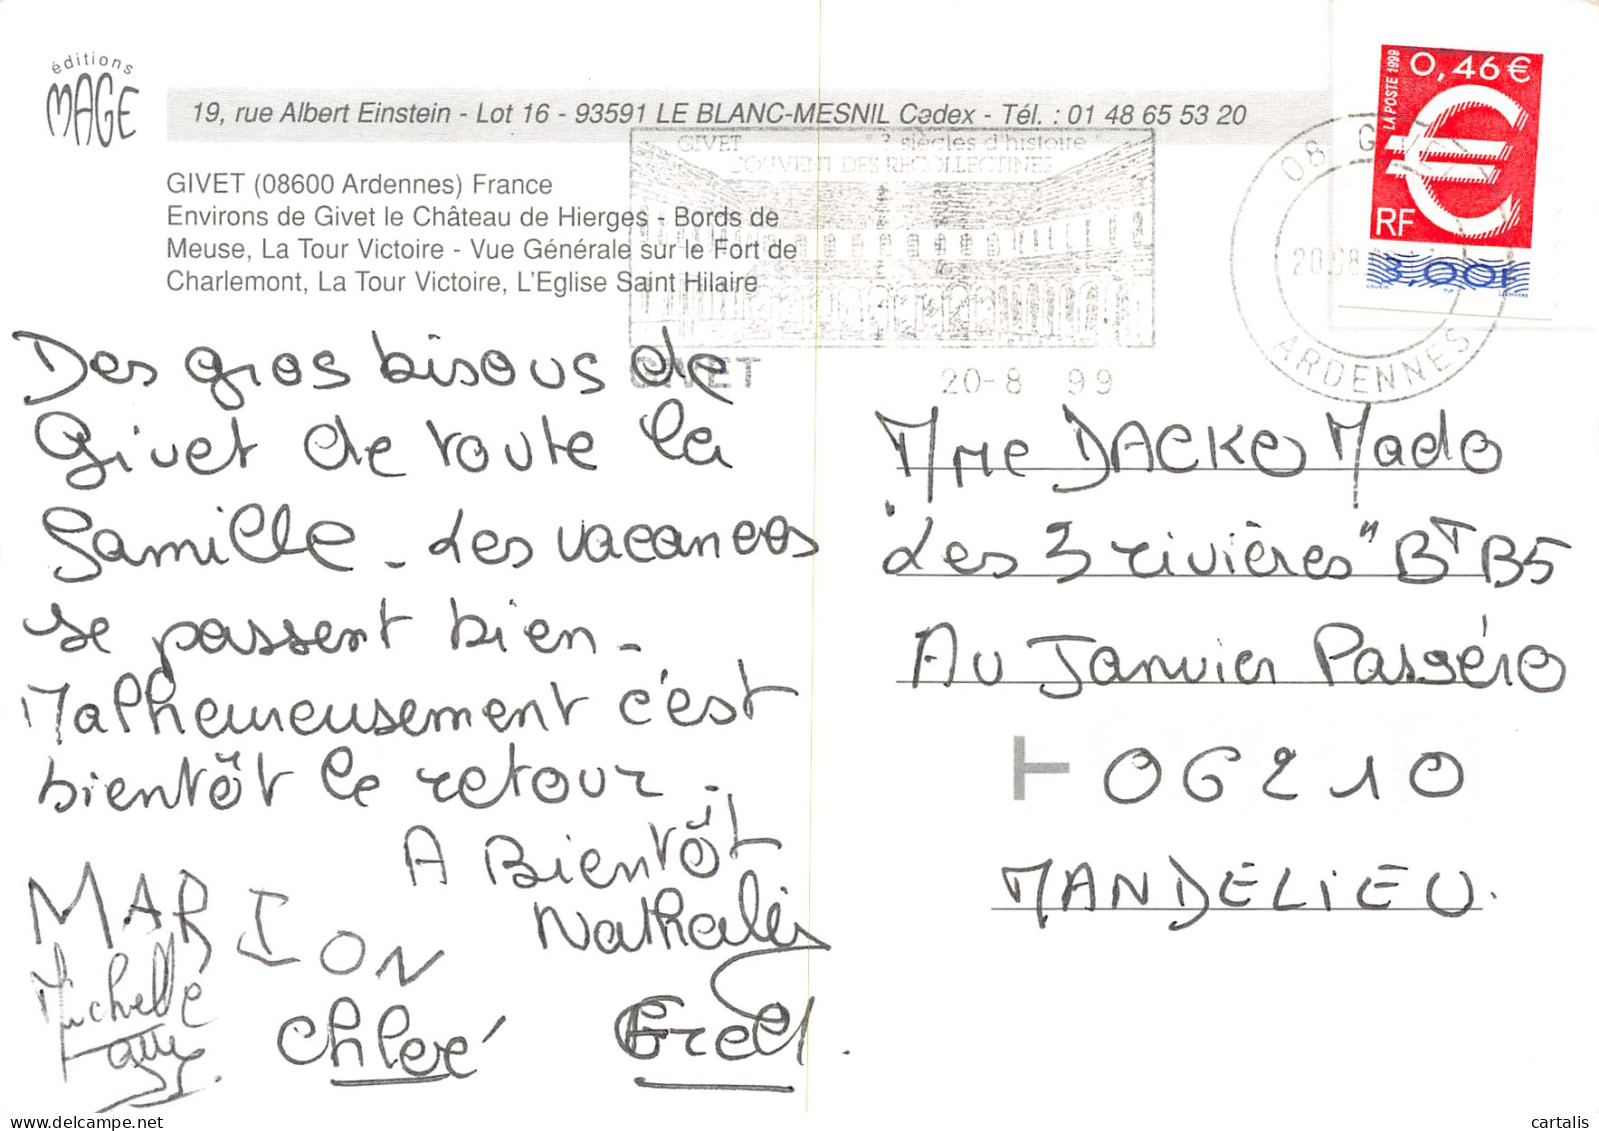 éditions
MAGE
19, rue Albert Einstein - Lot 16 - 93591 LE BLANC-MESNIL Cedex - Tél. : 01 48 65 53 20
GIVET (08600 Ardennes) France
Environs de Givet le Château de Hierges - Bords de
Meuse, La Tour Victoire - Vue Générale sur le Fort de
Charlemont, La Tour Victoire, L'Eglise Saint Hilaire
GIVET 3 siècles d'histoire
COUVENT DES RECOLLECTINES
GIVET 20-8 99
0,46 €
LA POSTE 1999
RF
3,00F
08 GIVET
20.8
ARDENNES
Des gros bisous de
Givet de toute la
famille - Les vacances
se passent bien -
Malheureusement c'est
bientôt le retour.
A Bientôt
Nathalie
MARION
Michelle
Chloé
Fred.
Mme DACKO Mado
"Les 3 rivières" BT B5
Av Janvier Passéro
06210
MANDELIEU.
cartalis